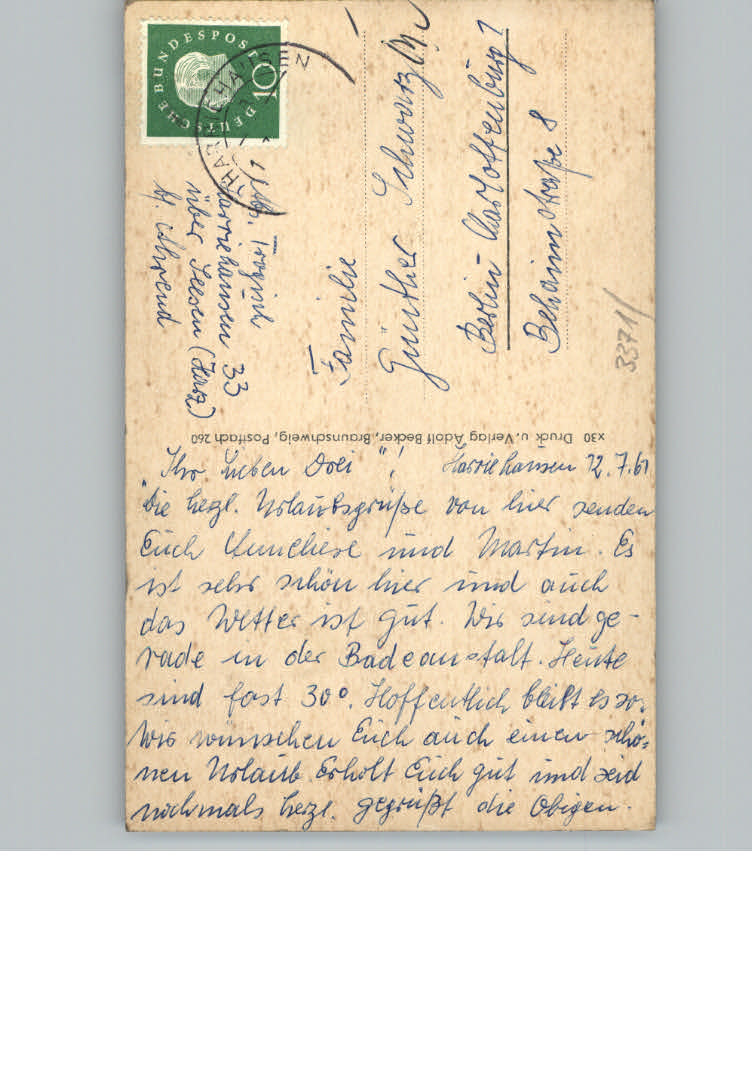 DEUTSCHE BUNDESPOST
10
HARRIEHAUSEN
Harriehausen 33
über Seesen (Harz)
b/ Ahrend
Familie
Günther Schwarz
Berlin-Charlottenburg 1
Behaimstraße 8
3371/
x30 Druck u. Verlag Adolf Becker, Braunschweig, Postfach 260
Ihr lieben Drei"! Harriehausen 12.7.61
Die hezl. Urlaubsgrüße von hier senden
Euch und Martin. Es
ist sehr schön hier und auch
das Wetter ist gut. Wir sind ge-
rade in der Badeanstalt. Heute
sind fast 30°. Hoffentlich bleibt es so.
Wir wünschen Euch auch einen schö-
nen Urlaub. Erholt Euch gut und seid
nochmals herzl. gegrüßt die Obigen.